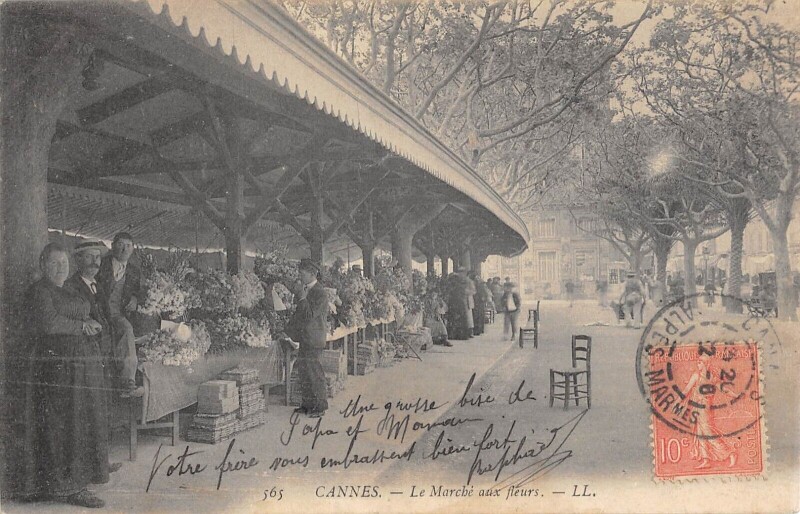 Une grosse bise de
Papa et Maman
Votre frère vous embrassent bien fort
Raphaël
565 CANNES. — Le Marché aux fleurs. — LL.
RÉPUBLIQUE FRANÇAISE
10c
ALPES MARMES